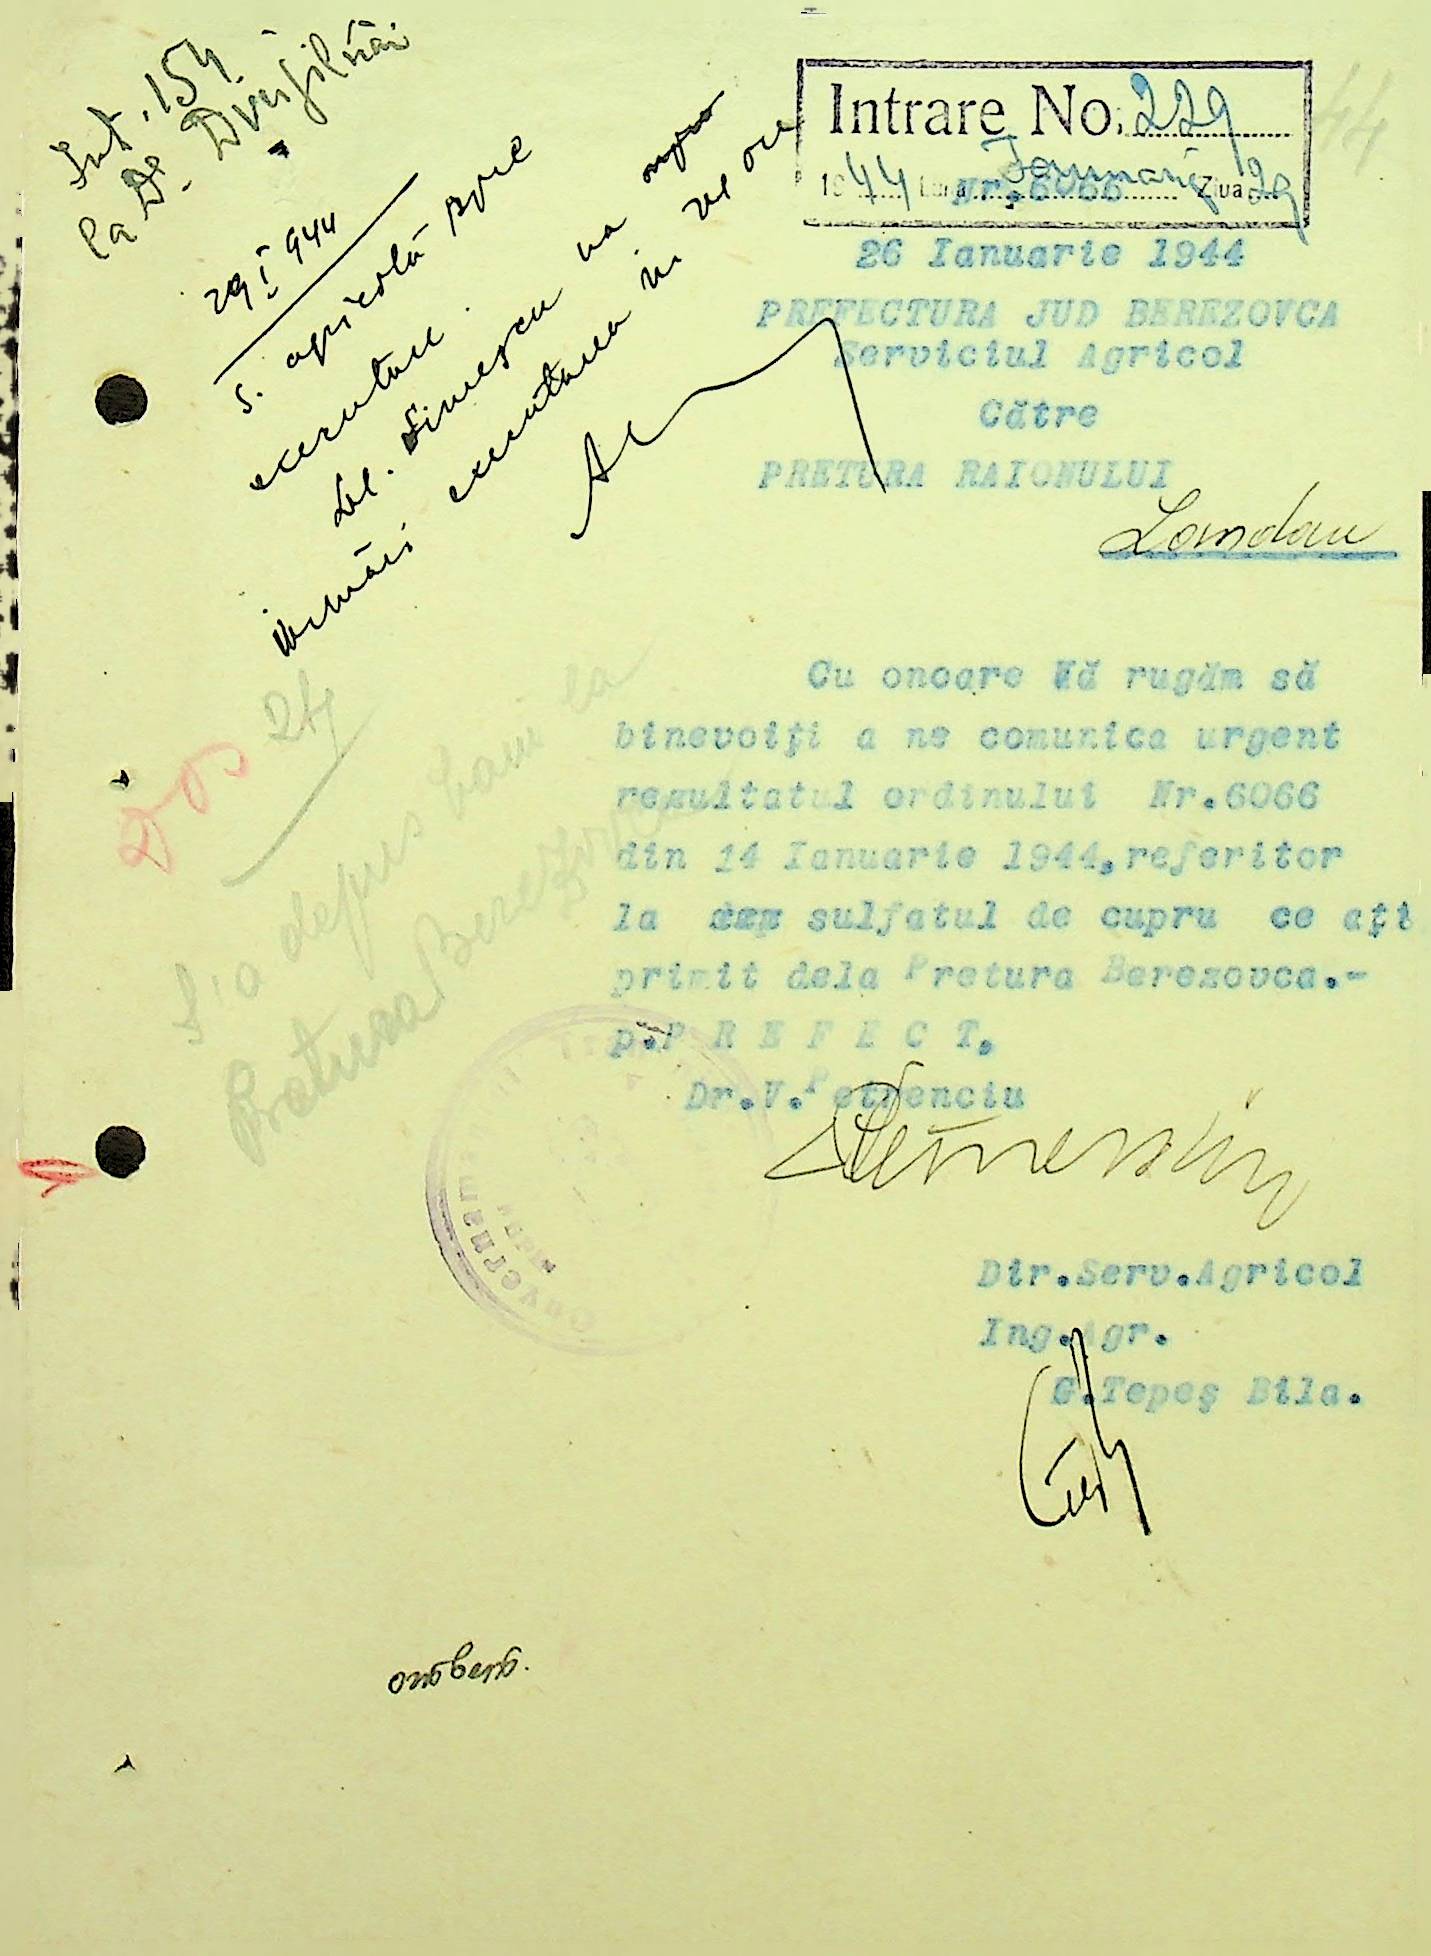 Int. 154
La D.
29 I 944
S. agricolă spre
executare.
urmări executarea in
Intrare No. 229
1944 Luna Ianuarie Ziua 29
Nr.6066
44
26 Ianuarie 1944
PREFECTURA JUD BEREZOVCA
Serviciul Agricol
Către
PRETURA RAIONULUI
Landau
Cu onoare Vă rugăm să
binevoiţi a ne comunica urgent
rezultatul ordinului Nr.6066
din 14 Ianuarie 1944,referitor
la sulfatul de cupru ce aţi
primit dela Pretura Berezovca.-
p.P R E F E C T.
Dr.V.Petrenciu
Dos 24
S'a depus bani la
Pretura Berezovca
Guvernam
Dir.Serv.Agricol
Ing.Agr.
G.Tepeş Bila.